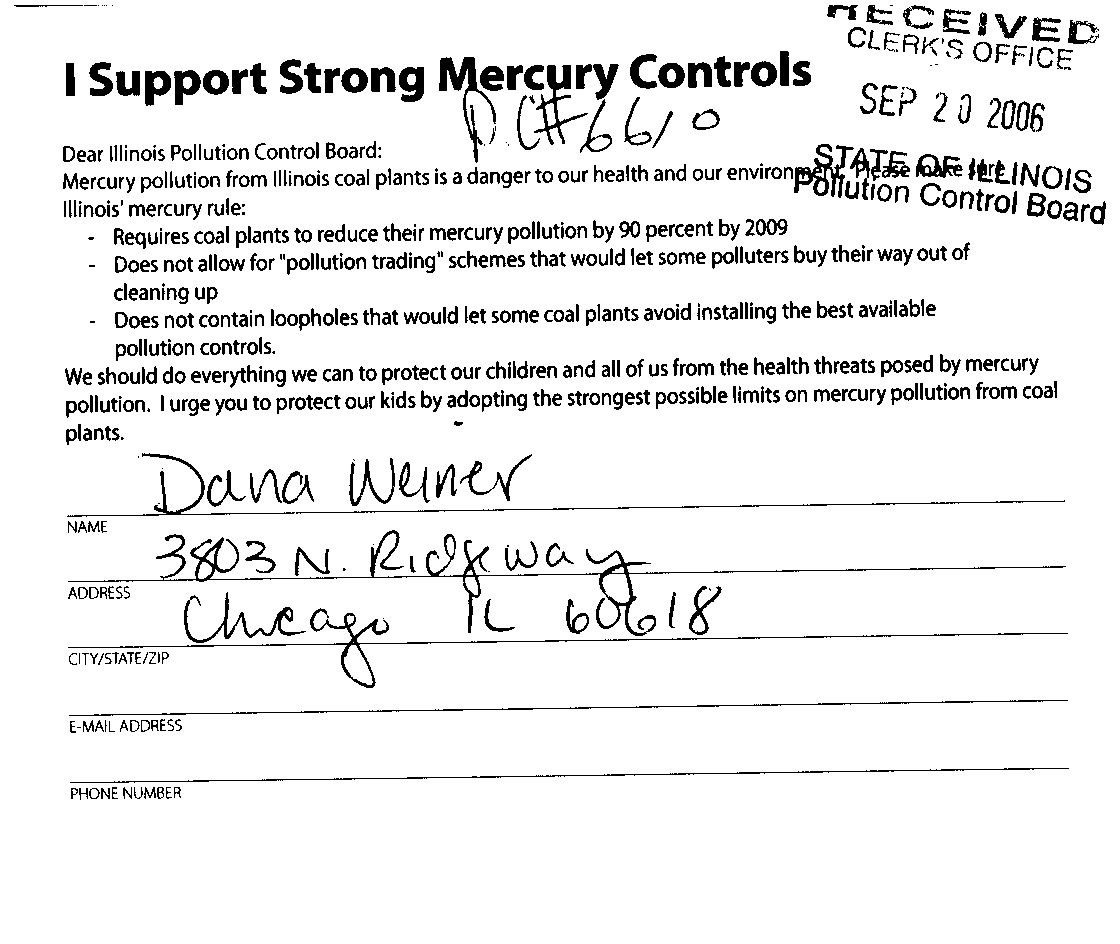 RECEIVED
CLERK'S OFFICE
SEP 20 2006
STATE OF ILLINOIS
Pollution Control Board
I Support Strong Mercury Controls
P.C.#6610
Dear Illinois Pollution Control Board:
Mercury pollution from Illinois coal plants is a danger to our health and our environment. Please make sure
Illinois' mercury rule:
- Requires coal plants to reduce their mercury pollution by 90 percent by 2009
- Does not allow for "pollution trading" schemes that would let some polluters buy their way out of
cleaning up
- Does not contain loopholes that would let some coal plants avoid installing the best available
pollution controls.
We should do everything we can to protect our children and all of us from the health threats posed by mercury
pollution. I urge you to protect our kids by adopting the strongest possible limits on mercury pollution from coal
plants.
Dana Weiner
NAME
3803 N. Ridgeway
ADDRESS
Chicago IL 60618
CITY/STATE/ZIP
E-MAIL ADDRESS
PHONE NUMBER